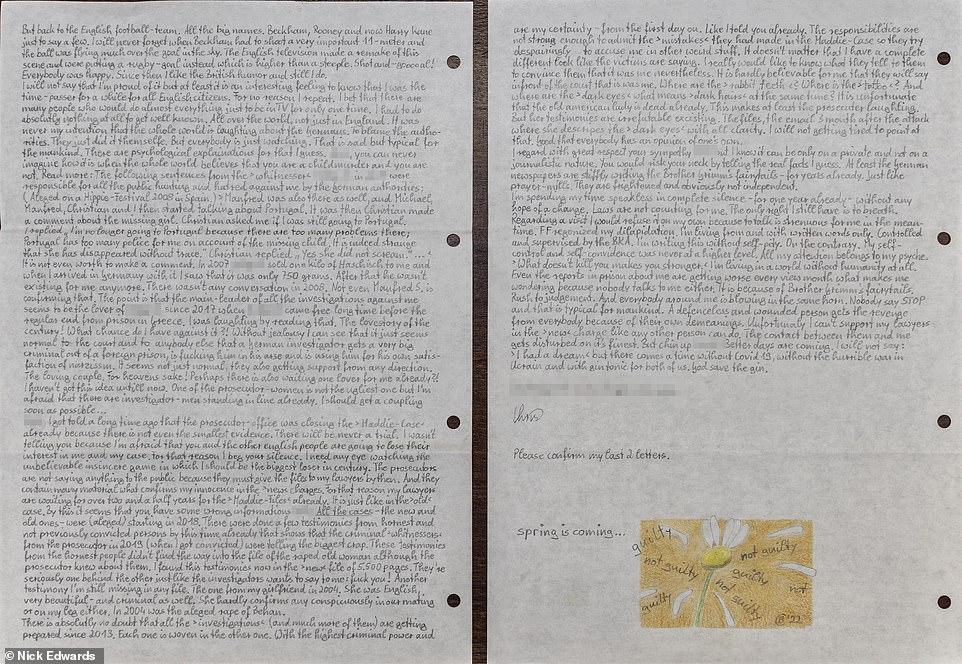 But back to the English football-team. All the big names. Beckham, Rooney and now Harry Kane
just to say a few. I will never forget when Beckham had to shoot a very important 11-meter and
the ball was flying much over the goal in the sky. The English television made a remake of this
scene and were putting a rugby-goal instead which is higher than a steeple. Shot and - goooal!
Everybody was happy. Since then I like the British humor and still I do.
I will not say that I'm proud of it but at least it is an interesting feeling to know that I was the
time-passer for a while for all English citizens. For no reason, I repeat. I bet that there are
many people who would do almost everything just to be in TV for only one time, I had to do
absolutely nothing at all to get well known. All over the world, not just in England. It was
never my intention that the whole world is laughing about the Germans. To blame the autho-
rities. They just did it themself. But everybody is just watching. That is sad but typical for
the mankind. There are psychological explanations for that I guess. you can never
imagine how it is when the whole world believes that you are a child murder an if you are
not. Read more: The following sentences from the >whitnesses< in were
responsible for all the public hunting and hatred against me by the german authorities:
(Aleged on a Hippie-Festival 2008 in Spain.) >Manfred was also there as well, and Michael,
Manfred, Christian and I then started talking about Portugal. It was then Christian made
a comment about the missing girl. Christian asked me if I was still going to Portugal.
I replied, "I'm no longer going to Portugal because there are too many problems there;
Portugal has too many police for me on account of the missing child. It is indeed strange
that she has disappeared without trace." Christian replied, "Yes she did not scream."...<
It is not even worth to make a comment. In 2007 sold one kilo of Haschisch to me and
when I arrived in Germany with it I saw that it was only 750 grams. After that he wasn't
existing for me anymore. There wasn't any conversation in 2008. Not even Manfred S. is
confirming that. The point is that the main-leader of all the investigations against me
seems to be the lover of since 2017 when came free long time before the
regular end from prison in Greece. I was laughing by reading that. The lovestory of the
century! What chance do I have against it?! Without jealousy I can see that it just seems
normal to the court and to anybody else that a german investigator gets a very big
criminal out of a foreign prison, is fucking him in his arse and is using him for his own satis-
faction of narzissm. It seems not just normal, they also getting support from any direction.
The loving couple. For heavens sake! Perhaps there is also waiting one lover for me already?!
I haven't got this idea untill now. One of the prosecutor-women is not the ugliest one but I'm
afraid that there are investigator-men standing in line already. I should get a coupling
soon as possible...
I got told a long time ago that the prosecutor-office was closing the >Maddie-Case<
already because there is not even the smallest evidence. There will be never a trial. I wasn't
telling you because I'm afraid that you and the other english people are going to lose their
interest in me and my case, for that reason I beg your silence. I need any eye watching the
unbelievable insincere game in which I should be the biggest loser in century. The prosecutors
are not saying anything to the public because they must give the files to my lawyers by then. And they
contain many material what confirms my innocence in the >new< charges. For that reason my lawyers
are waiting for over two and a half years for the >Maddie-Files< already. It is just like in the >old<
case, by this it seems that you have some wrong informations All the cases - the new and
old ones - were (aleged) starting in 2013. There were done a few testimonies from hornest and
not previously convicted persons by this time already that shows that the criminal >whitnesses<
from the prosecutor in 2019 (when I got convicted) were telling the biggest crap. These testimonies
from the hornest people didn't find the way into the file of the raped old woman although the
prosecutor knew about them. I found this testimonies now in the >new< file of 5.500 pages. They're
seriously one behind the other just like the investigators wants to say to me: fuck you! Another
testimony I'm still missing in any file. The one from my girlfriend in 2004. She was English,
very beautiful - and criminal as well. She hardly confirms any conspicuously in our mating
or on my leg either. In 2004 was the aleged rape of Behan.
There is absolutly no doubt that all the >investigations< (and much more of them) are getting
prepared since 2013. Each one is woven in the other one. With the highest criminal power and
are my certainty - from the first day on. Like I told you already. The responsibilities are
not strong enough to admit the >mistakes< they had made in the Maddie-Case so they try
despairingly - to accuse me in other weird stuff. It doesn't matter that I have a complete
different look like the victims are saying. I really would like to know what they tell to them
to convince them that it was me nevertheless. It is hardly believable for me that they will say
infront of the court that is was me. Where are the >rabbit teeth<? Where is the >tattoo<? And
where are the >dark eyes< what means >dark hairs at the same time<? It is unfortunate
that the old american lady is dead already. This makes at least the prosecuter laughting.
But her testimonies are irrefutable excisting. The files, the email 3 month after the attack
where she describes the >dark eyes< with all clarity. I will not getting tired to point at
that. Good that everybody has an opinion of one's own.
I regard with great respect your sympathy but I know it can be only on a private and not on a
journalistic nature. You would risk your neck by telling the real facts I guess. At least the German
newspapers are stiffly writing the Brother Grimm's fairytails - for years already. Just like
prayer-mills. They are frightened and obviously not independent.
I'm spending my time speakless in complete silence - for one year already - without any
hope of a change. Laws are not counting for me. The only right I still have is to breath.
Regarding a visit I would refuse for my own because to talk is strenuous for me in the mean-
time. FF regonized my dilapidation. I'm living from and with written words only. Controlled
and supervised by the BKA. I'm writing this without self-pity. On the contrary. My self-
control and self-confidence was never at a higher level. All my attention belongs to my psyche.
>What doesn't kill you makes you stronger.< I'm living in a world without humanity at all.
Even the reports in prison about me are getting worse every views month what makes me
wondering because nobody talks to me either. It is because of Brother grimm's fairytails.
Rush to judgement. And everybody around me is blowing in the same horn. Nobody say STOP
and that is typical for mankind. A defenceless and wounded person gets the revenge
from everybody because of their own demeanings. Unfortunatly I can't support my lawyers
in the >new< charge like any other person can do. The contact between them and me
gets disturbed on it's finest. But chin up Better days are coming. I will not say:
>I had a dream< but there comes a time without Covid 19, without the horrible war in
Ucrain and with gin tonic for both of us. God save the gin.
Chris
Please confirm my last 2 letters.
spring is coming...
guilty
not guilty
not guilty
guilty
not
guilty
not guilty
CB'22
© Nick Edwards